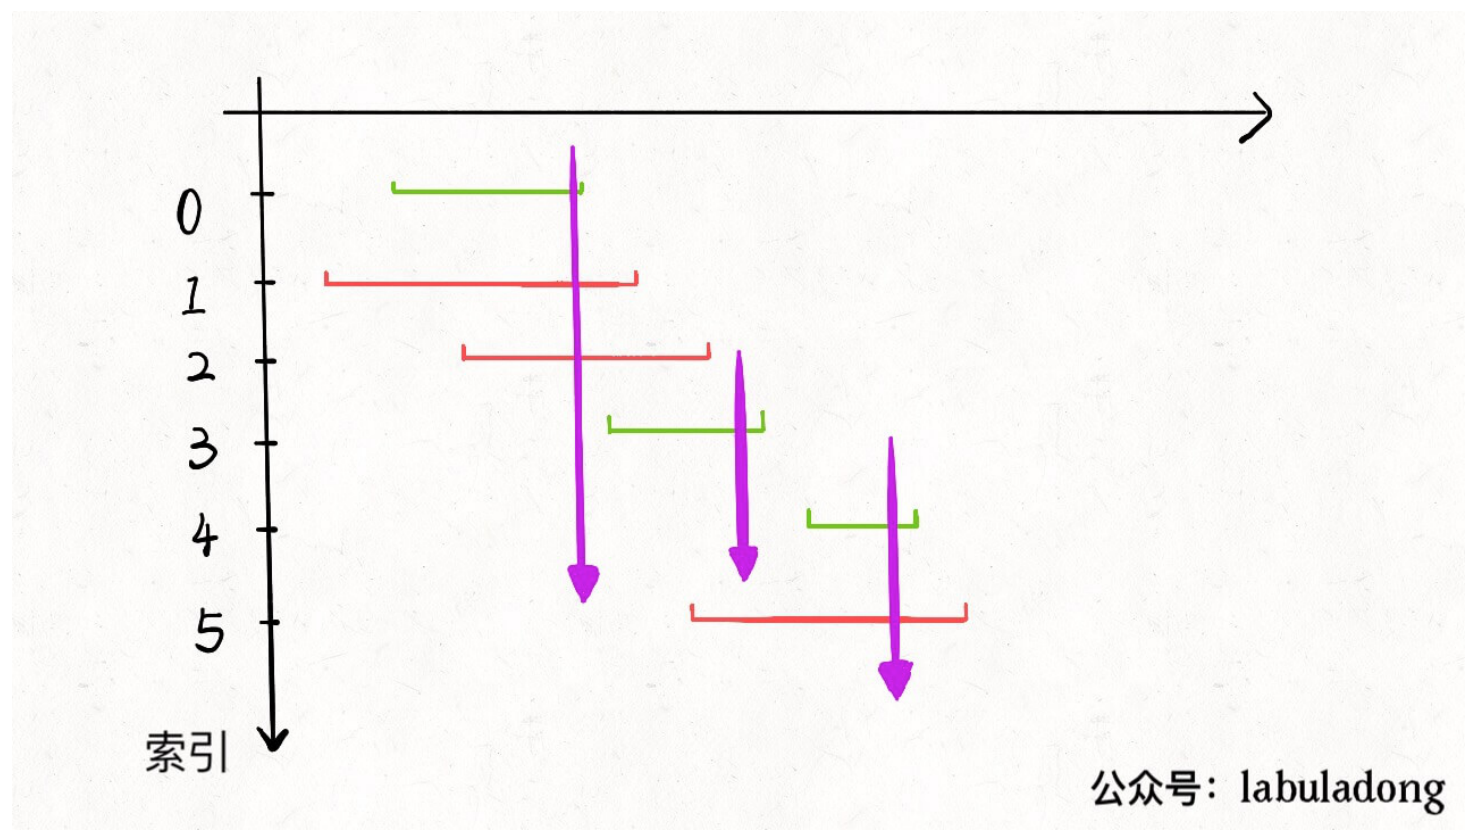 0
1
2
3
4
5
索引
公众号：labuladong